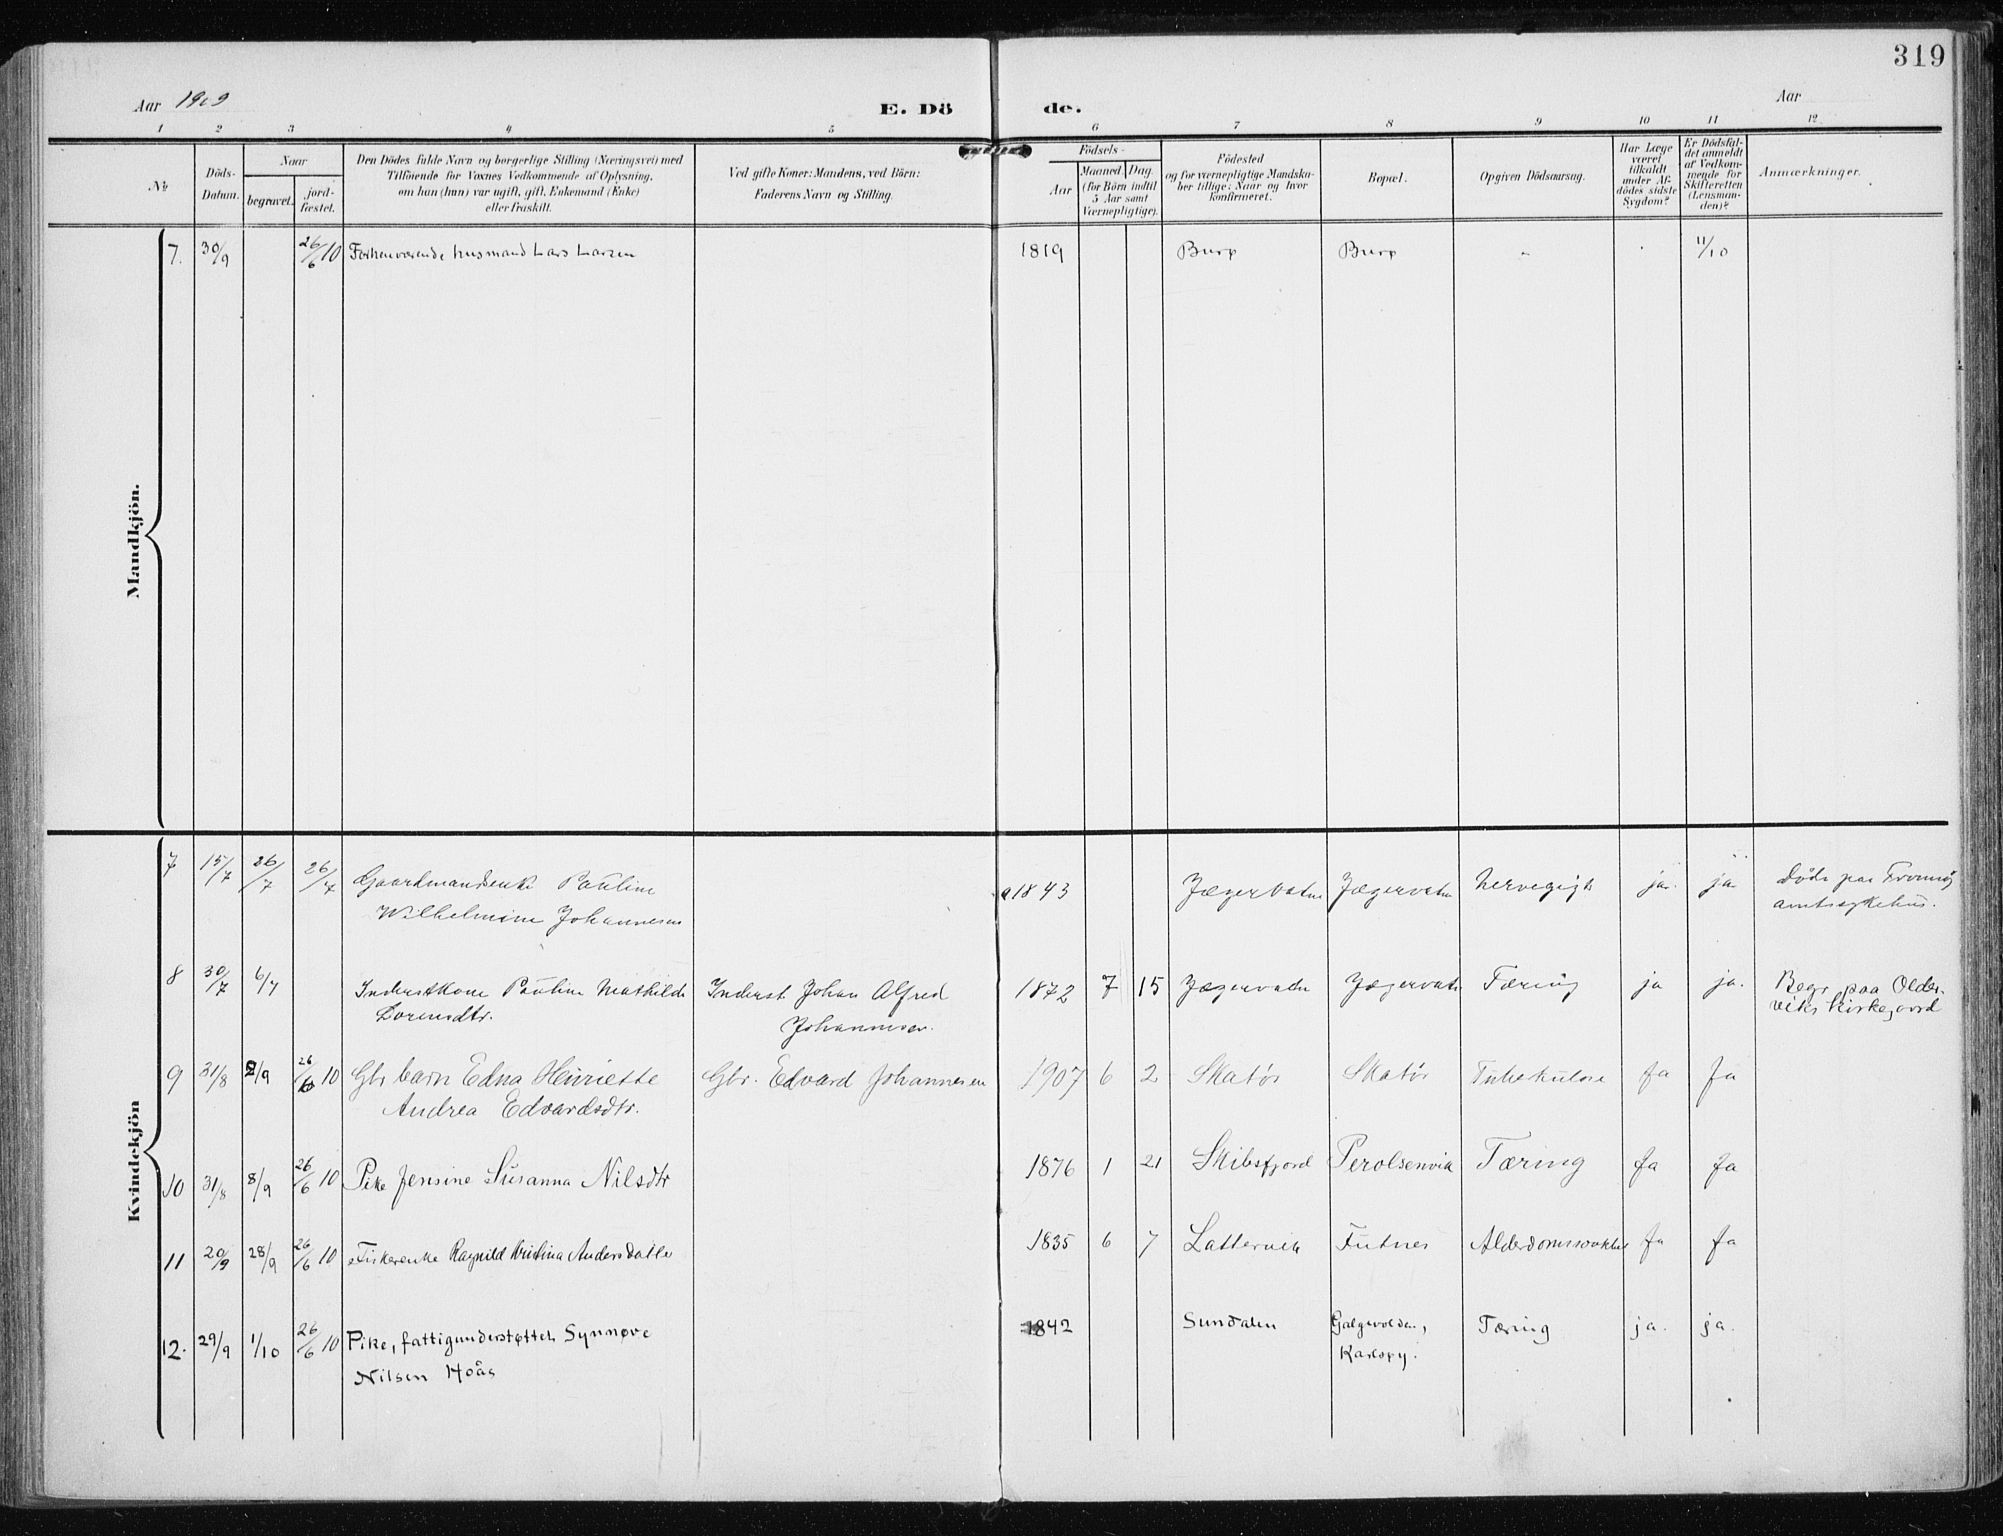 319
Aar 1909
E. Dö
de.
Aar
1 2 3 4 5 6 7 8 9 10 11 12
№
Döds-Datum.
Naar
begravet.
jord-fæstet.
Den Dödes fulde Navn og borgerlige Stilling (Næringsvei) med
Tilföiende for Voxnes Vedkommende af Oplysning,
om han (hun) var ugift, gift, Enkemand (Enke)
eller fraskilt.
Ved gifte Koner: Mandens, ved Börn:
Faderens Navn og Stilling.
Födsels-
Aar
Maaned. Dag.
(for Börn indtil
5 Aar samt
Værnepligtige).
Födested
og for værnepligtige Mandska-
ber tillige: Naar og hvor
konfirmeret.
Bopæl.
Opgiven Dödsaarsag.
Har Læge
været
tilkaldt
under Af-
dödes sidste
Sygdom?
Er Dödsfal-
det anmeldt
af Vedkom-
mende for
Skifteretten
(Lensman-
den)?
Anmærkninger.
Mandkjön.
7. 30/9 26/6 10 Forhenværende husmand Lars Larsen 1819 Burø Burø - 11/10
Kvindekjön
7 15/7 26/7 26/7 Gaardmandsenke Pauline 1843 Jægervatn Jægervatn ja. ja døde paa Tromsø
Wilhelmine Johannesen amtssykehus.
8 30/7 6/7 Inderstkone Pauline Mathilde Inderst Johan Alfred 1872 7 15 Jægervatn Jægervatn Tæring ja ja. Begr. paa Older-
Lorensdtr. Johannesen. viks kirkegaard
9 31/8 8/9 26/6 10 Gbr barn Edna Henriette Gbr. Edvard Johannesen 1907 6 2 Skatør Skatør Tuberkulose Ja Ja
Andrea Edvardsdtr.
10 31/8 8/9 26/6 10 Pike Jensine Susanna Nilsdtr 1876 1 21 Skibsfjord Perolsenvik Tæring Ja Ja
11 20/9 28/9 26/6 10 Fiskerenke Ragnild Kristina Andersdatte 1835 6 7 Lattervik Futnes Alderdomssvakhet Ja Ja
12. 29/9 1/10 26/6 10 Pike, fattigunderstøttet Synnøve 1842 Sundalen Galgevolden, Tæring ja. ja.
Nilsen Hoås Karlsøy.